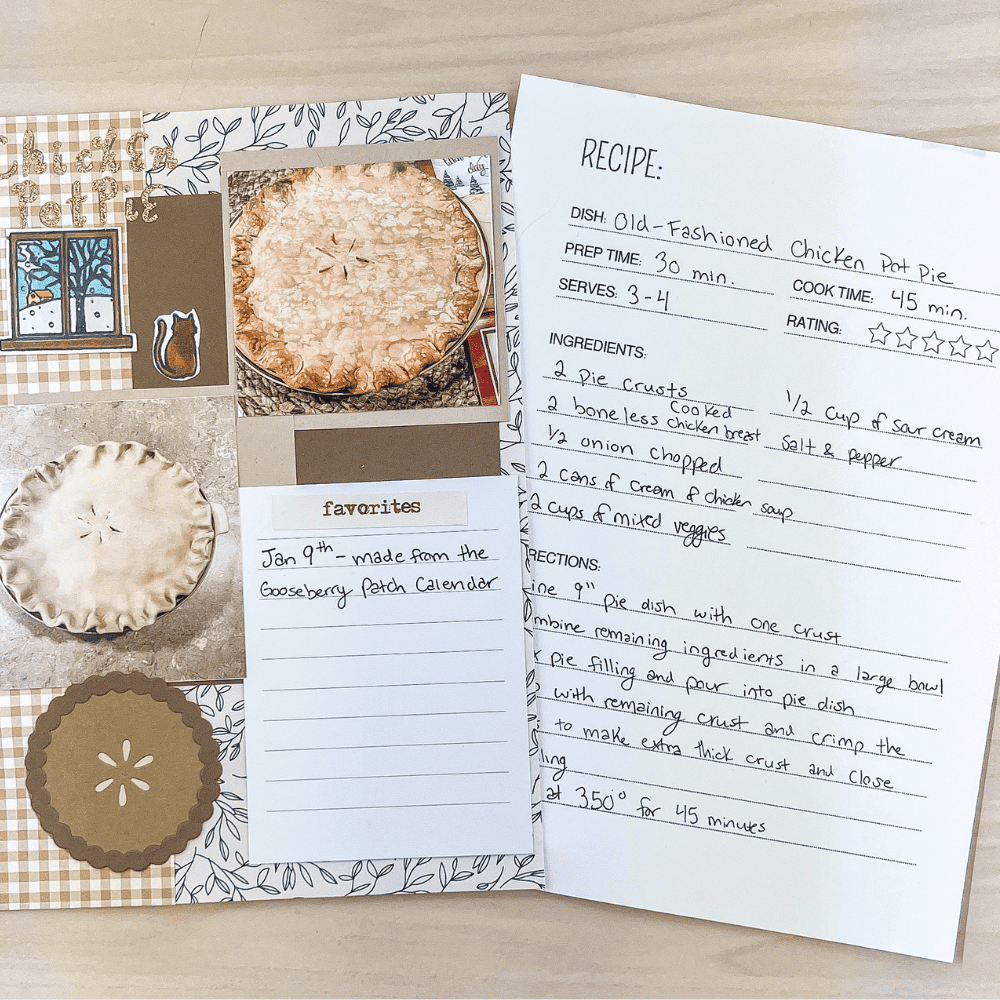 Chicken
Pot Pie
day
favorites
Jan 9th - made from the
Gooseberry Patch Calendar
RECIPE:
DISH: Old-Fashioned Chicken Pot Pie
PREP TIME: 30 min.
COOK TIME: 45 min.
SERVES: 3-4
RATING:
INGREDIENTS:
2 pie crusts
2 boneless cooked chicken breast
1/2 onion chopped
2 cans of cream of chicken soup
2 cups of mixed veggies
1/2 cup of sour cream
salt & pepper
RECTIONS:
ine 9" pie dish with one crust
mbine remaining ingredients in a large bowl
pie filling and pour into pie dish
with remaining crust and crimp the
to make extra thick crust and close
ling
at 350° for 45 minutes